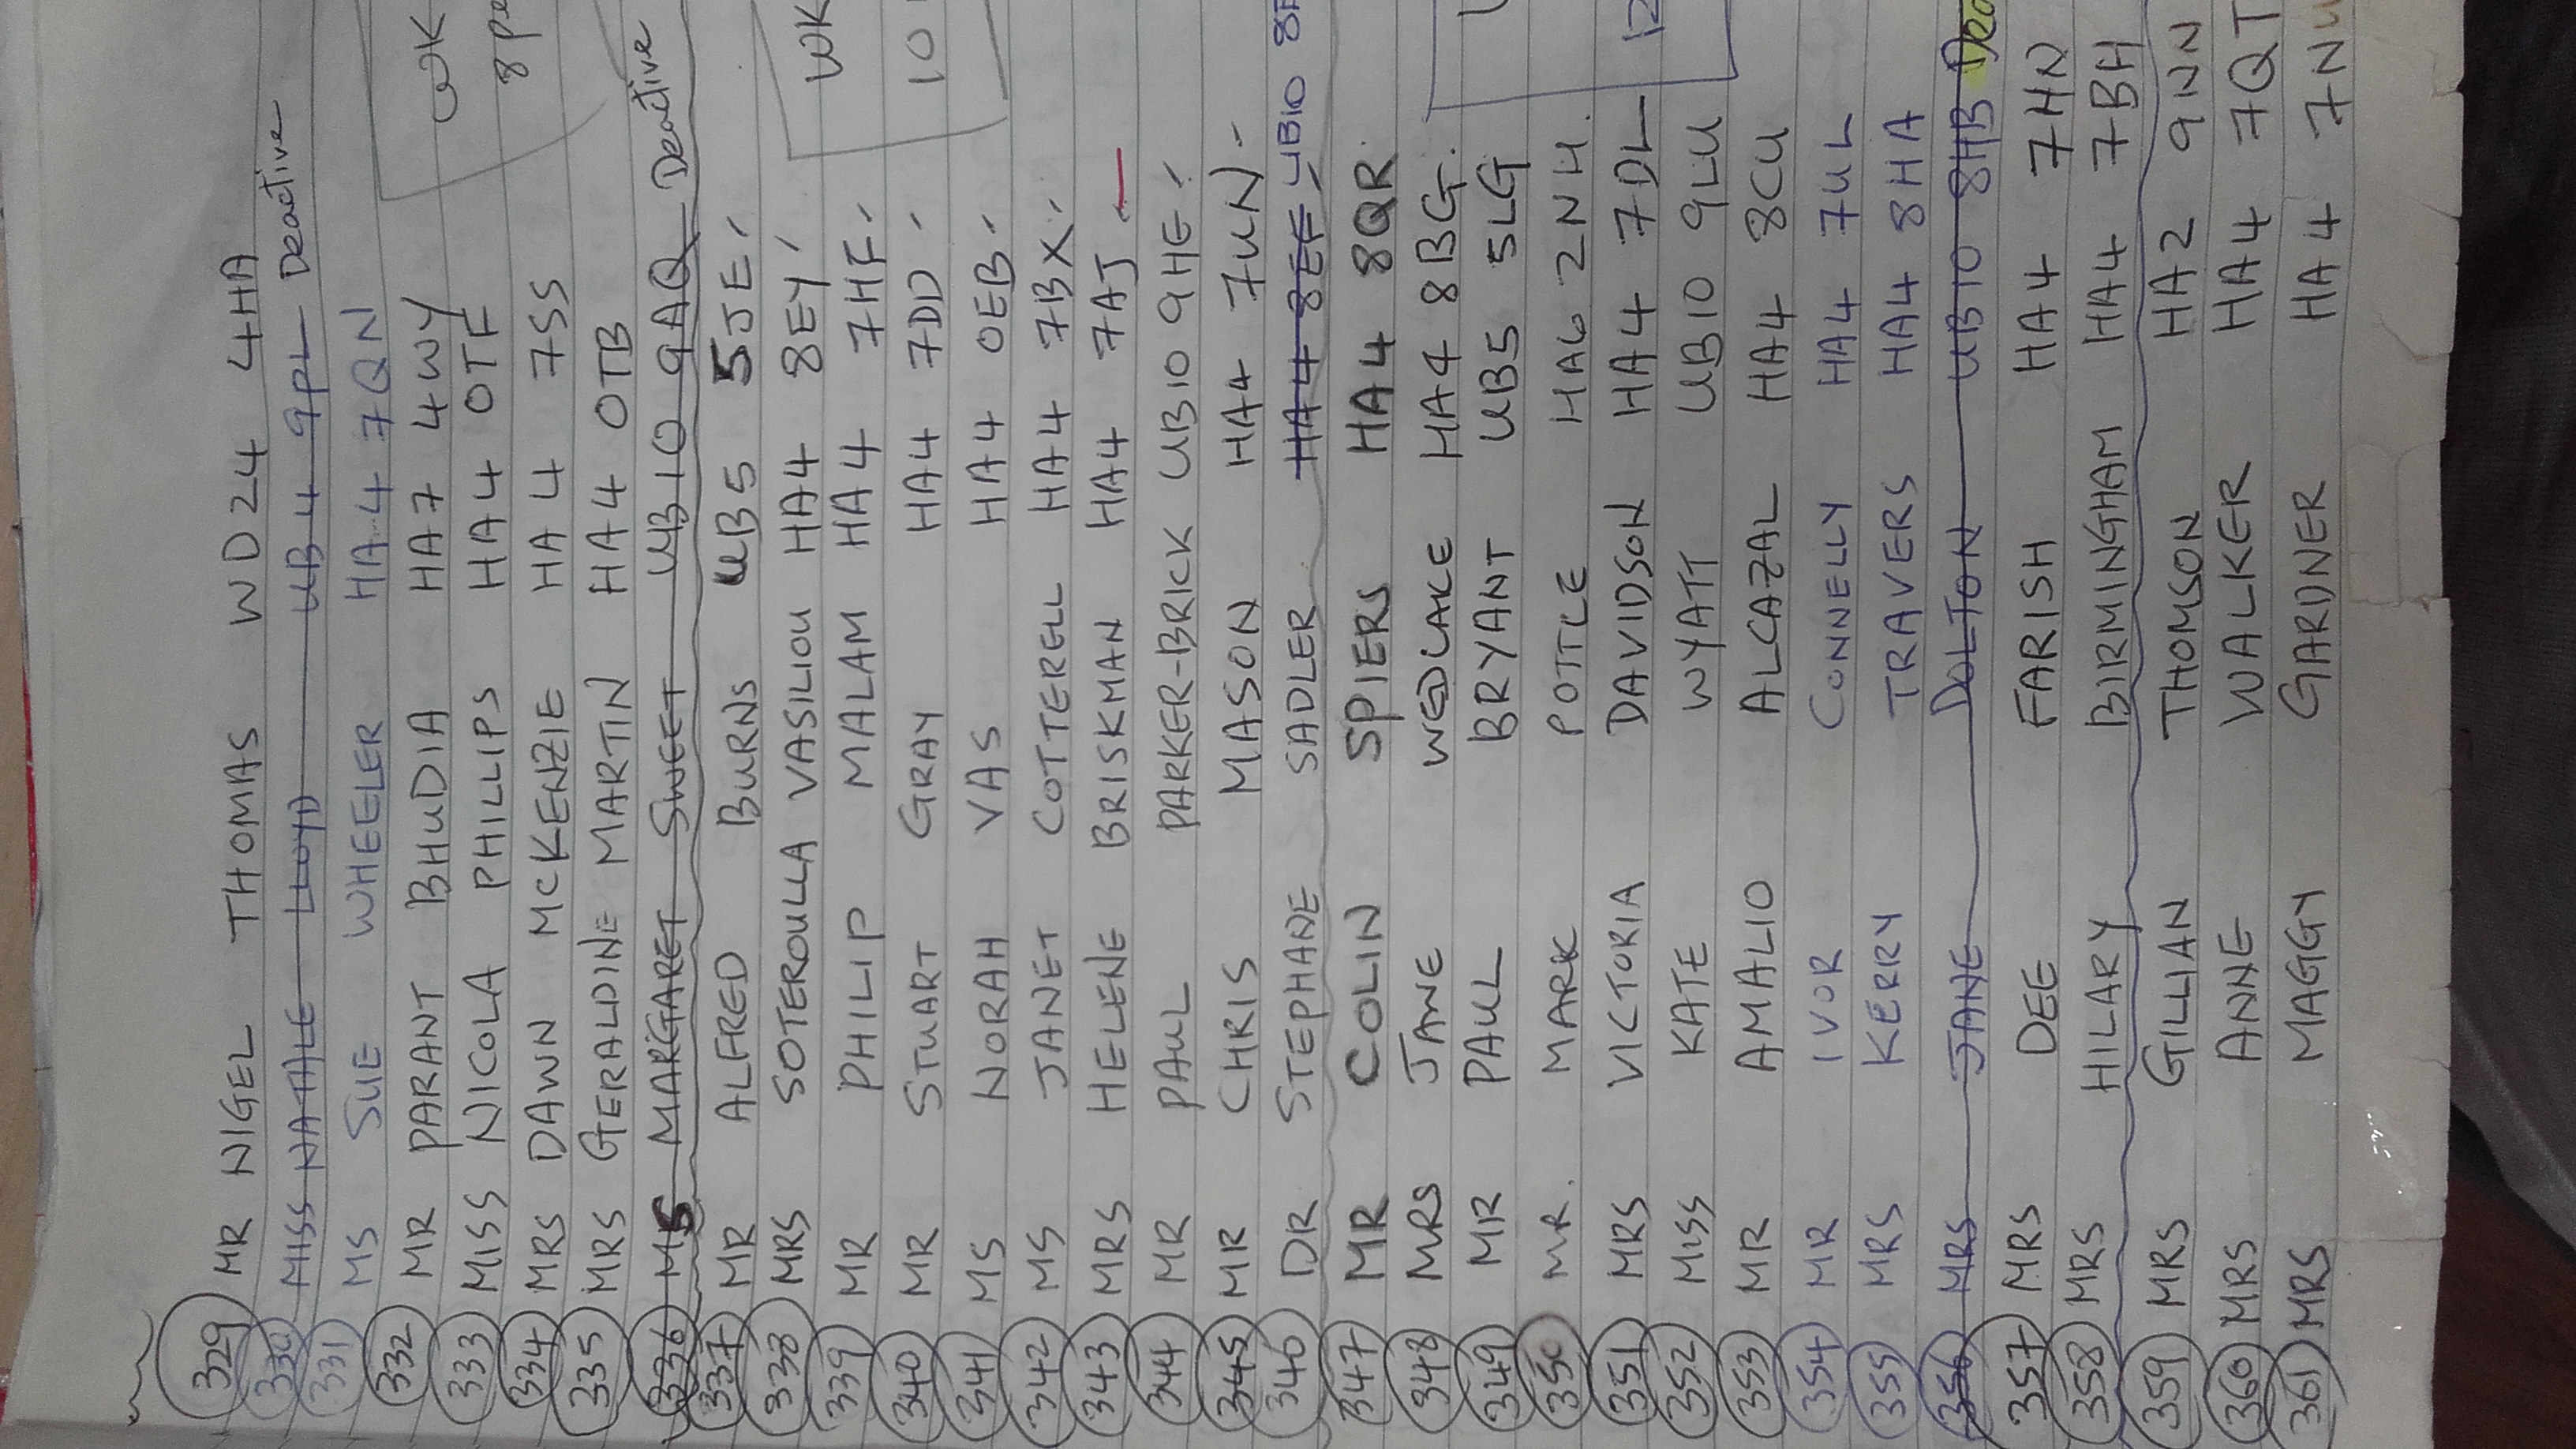 329 MR NIGEL THOMAS WD24 4HA
330 MISS NATALE LLOYD UB4 9PL Deactive
331 MS SUE WHEELER HA4 7QN
332 MR PARANT BHUDIA HA7 4WY WK
333 MISS NICOLA PHILLIPS HA4 0TF 8 pe
334 MRS DAWN MCKENZIE HA4 7SS
335 MRS GERALDINE MARTIN HA4 0TB
336 MS MARGARET SWEET UB10 9AQ Deactive
337 MR ALFRED BURNS UB5 5JE
338 MRS SOTEROULLA VASILIOU HA4 8EY WK
339 MR PHILIP MALAM HA4 7HF
340 MR STUART GRAY HA4 7DD 10
341 MS NORAH VAS HA4 0EB
342 MS JANET COTTERELL HA4 7BX
343 MRS HELENE BRISKMAN HA4 7AJ
344 MR PAUL PARKER-BRICK UB10 9HE
345 MR CHRIS MASON HA4 7UN
346 DR STEPHANE SADLER HA4 8EF UB10
347 MR COLIN SPIERS HA4 8QR
348 MRS JANE WEDLAKE HA4 8BG.
349 MR PAUL BRYANT UB5 5LG
350 MR. MARK POTTLE HA6 2NH.
351 MRS VICTORIA DAVIDSON HA4 7DL 12
352 MISS KATE WYATT UB10 9LU
353 MR AMALIO ALCAZAL HA4 8CU
354 MR IVOR CONNELLY HA4 7UL
355 MRS KERRY TRAVERS HA4 8HA
356 MRS JANE DOLTON UB10 8HB Dea
357 MRS DEE FARISH HA4 7HN
358 MRS HILARY BIRMINGHAM HA4 7BH
359 MRS GILLIAN THOMSON HA2 9NN
360 MRS ANNE WALKER HA4 7QT
361 MRS MAGGY GARDNER HA4 7NU